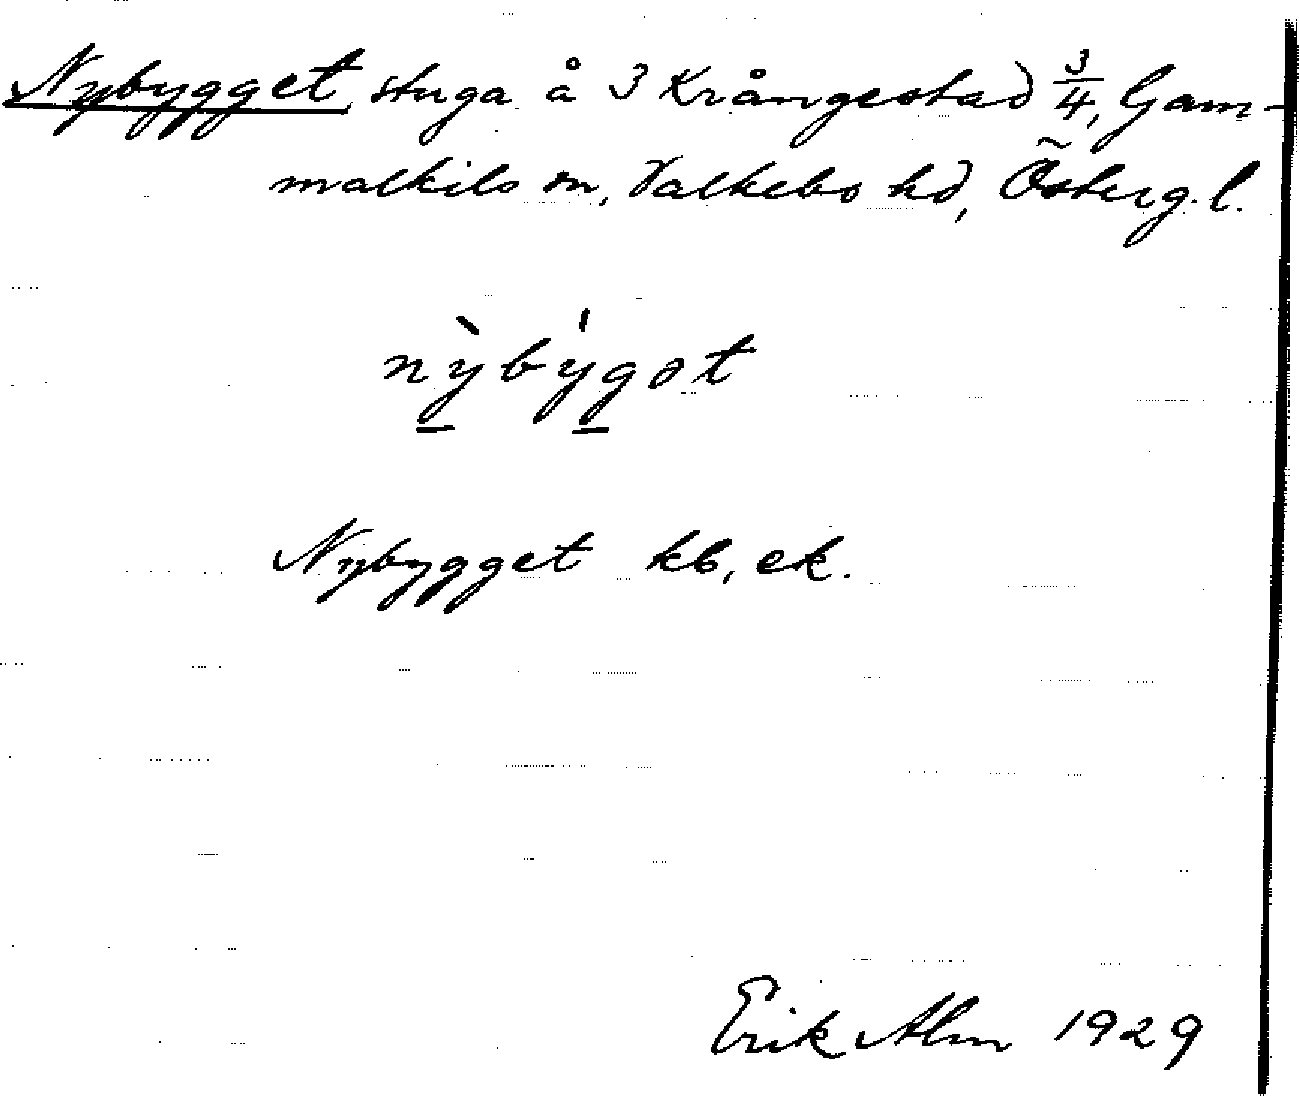 Nybygget stuga å 3 Krångestad 3/4, Gam-
malkils sn, Valkebo hd, Österg. l.
nỳbýgət
Nybygget kb, ek.
Erik Alm 1929